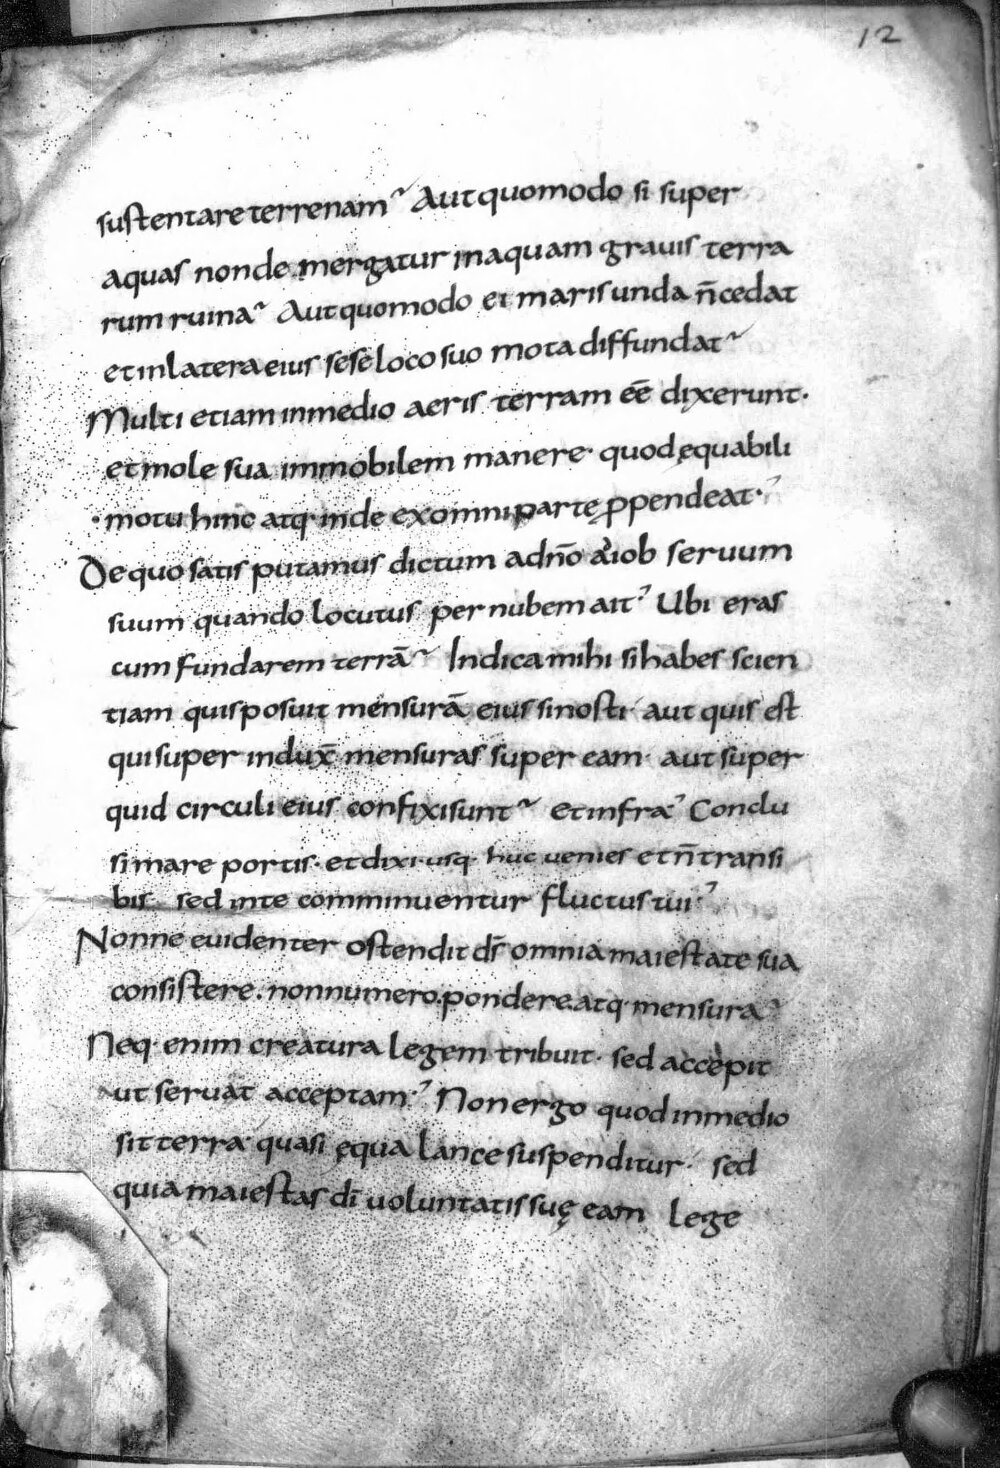 12
sustentare terrenam? Aut quomodo si super
aquas non demergatur in aquam grauis terra
rum ruina? Aut quomodo ei maris unda n̄ cedat
et in latera eius sese loco suo mota diffundat?
Multi etiam in medio aeris terram eē dixerunt·
et mole sua immobilem manere· quod ęquabili
motu hinc atq· inde ex omni partę ꝓpendeat·
De quo satis putamus dictum a dn̄o ad iob seruum
suum quando locutus per nubem ait? Ubi eras
cum fundarem terrā? Indica mihi si habes scien
tiam quis posuit mensurā eius si nosti· aut quis est
qui super indux̄ mensuras super eam· aut super
quid circuli eius confixi sunt? et infra? Conclu
si mare portis· et dixi· usq· huc uenies et n̄ transi
bis· sed in te comminuentur fluctus tui?
Nonne euidenter ostendit ds̄ omnia maiestate sua
consistere. non numero. pondere. atq· mensura?
Neq· enim creatura legem tribuit· sed accepit
ut seruat acceptam? Non ergo quod in medio
sit terra· quasi ęqua lance suspenditur· sed
quia maiestas dī uoluntatis suę eam lege